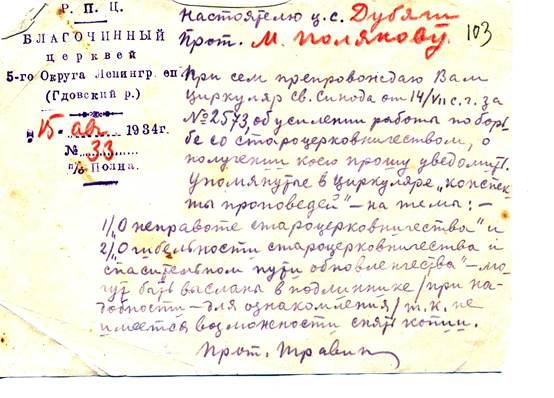 Р. П. Ц.
БЛАГОЧИННЫЙ
церквей
5-го Округа Ленингр. еп.
(Гдовский р.)
15 авг 1934г.
№ 33
п/о Полна.
Настоятелю ц. с. Дубяги
Прот. М. Полякову.
103
При сем препровождаю Вам
циркуляр Св. Синода от 14/VII с. г. за
№ 2573, об усилении работы по борь
бе со староцерковничеством, о
получении коего прошу уведомить.
Упомянутые в циркуляре „конспек
ты проповедей" – на темы: –
1/ „О неправоте староцерковничества" и
2/ „О гибельности староцерковничества и
спасительном пути обновленчества" – мо
гут быть высланы в подлиннике /при на-
добности – для ознакомления/ т. к. не
имеется возможности снять копии.
Прот. Травин